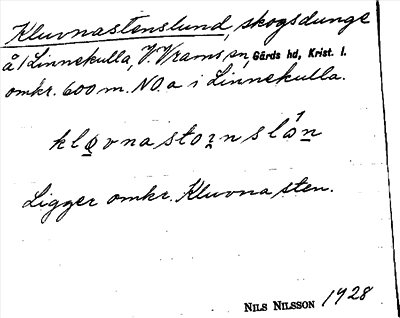 Kluvnastenslund, skogsdunge
å 1 Linnekulla, V. Vrams sn, Gärds hd, Krist. l.
omkr. 600 m. NO. a i Linnekulla.
Ligger omkr. Kluvna sten.
NILS NILSSON 1928